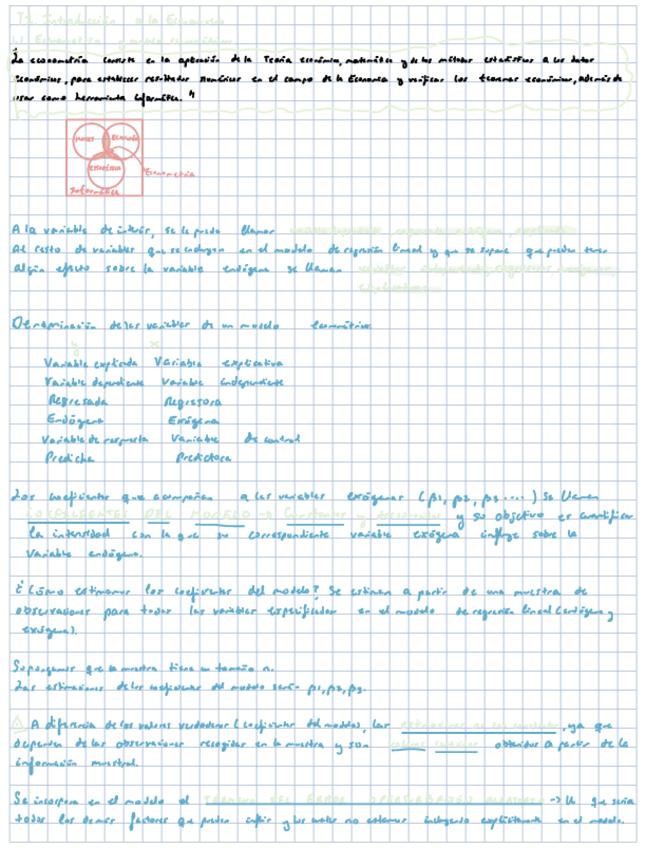 T1. Introducción a la Econometría
La econometría consiste en la aplicación de la Teoría económica, matemática y de los métodos estadísticos a los datos
económicos, para establecer resultados numéricos en el campo de la Economía y verificar los teoremas económicos, además de
usar como herramienta informática."
Economía
estadística
Econometría
Informática
A la variable de interés, se le puede llamar
Al resto de variables que se incluyen en el modelo de regresión lineal y que se supone que pueden tener
algún efecto sobre la variable endógena se llaman
Denominación de las variables de un modelo econométrico
y x
Variable explicada Variable explicativa
Variable dependiente Variable independiente
Regresada Regresora
Endógena Exógena
Variable de respuesta Variable de control
Predicha Predictora
Los coeficientes que acompañan a las variables exógenas (β1, β2, β3 ....) Se llaman
COEFICIENTES DEL MODELO → Constantes y y su objetivo es cuantificar
la intensidad con la que su correspondiente variable exógena influye sobre la
variable endógena.
¿Cómo estimamos los coeficientes del modelo? Se estiman a partir de una muestra de
observaciones para todas las variables especificadas en el modelo de regresión lineal (endógena y
exógena).
Supongamos que la muestra tiene un tamaño n.
Las estimaciones de los coeficientes del modelo serán β1, β2, β3.
A diferencia de los valores verdaderos (coeficientes del modelo), las , ya que
dependen de las observaciones recogidas en la muestra y son obtenidos a partir de la
información muestral.
Se incorpora en el modelo el TÉRMINO DEL ERROR → que sería
todos los demás factores que pueden influir y los cuales no estamos incluyendo explícitamente en el modelo.